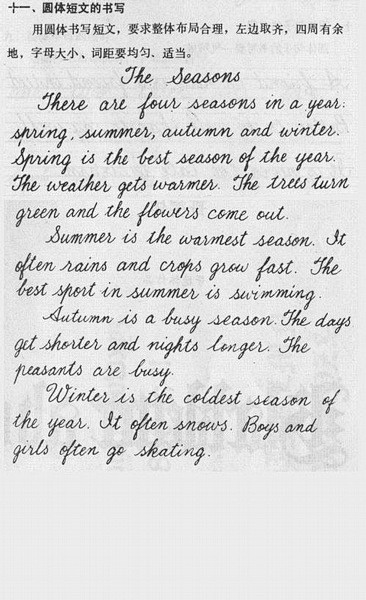 十一、圆体短文的书写
用圆体书写短文，要求整体布局合理，左边取齐，四周有余
地，字母大小、词距要均匀、适当。
The Seasons
There are four seasons in a year:
spring, summer, autumn and winter.
Spring is the best season of the year.
The weather gets warmer. The trees turn
green and the flowers come out.
Summer is the warmest season. It
often rains and crops grow fast. The
best sport in summer is swimming.
Autumn is a busy season. The days
get shorter and nights longer. The
peasants are busy.
Winter is the coldest season of
the year. It often snows. Boys and
girls often go skating.